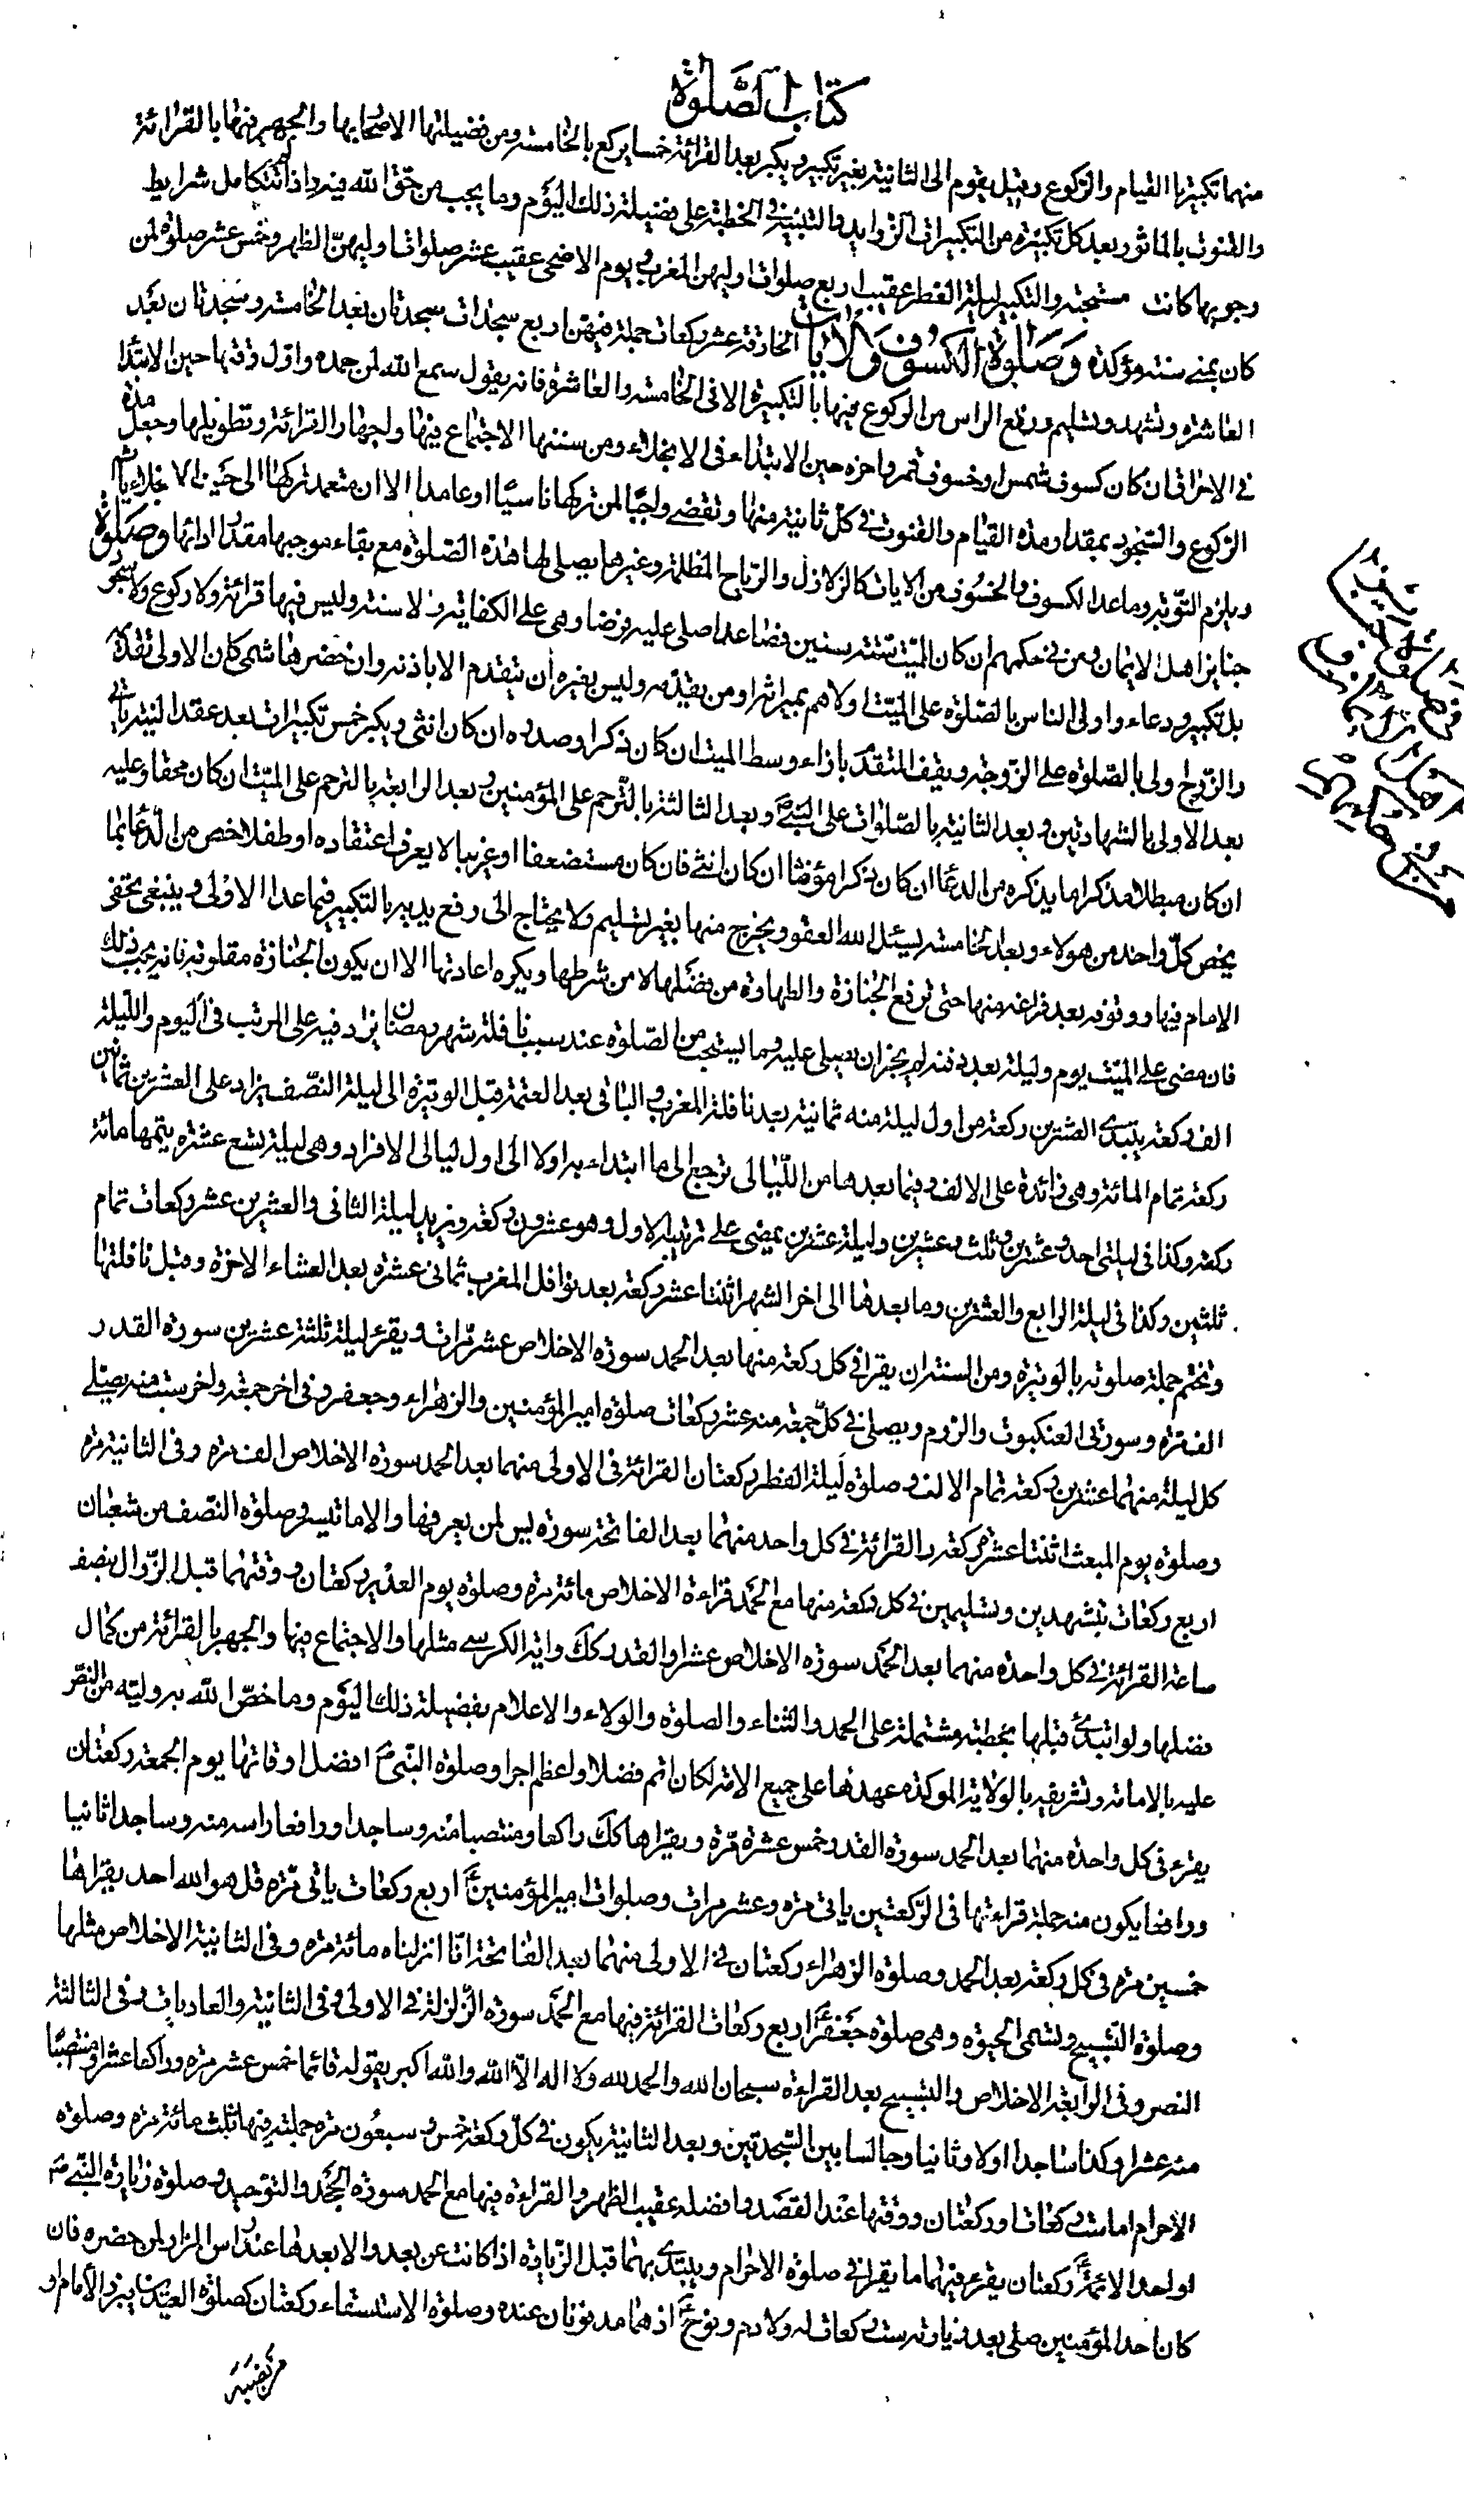 كتاب الصلوة
منهما تكبيرتا القيام والركوع وقيل يقوم الى الثانية بغير تكبير ويكبر بعد القرائة خمسا يركع بالخامسة ومن فضيلتها الاصحار بها والجهر فيها بالقرائة
والقنوت بالماثور بعد كل تكبيرة من التكبيرات الزوايد والتنبيه في الخطبة على فضيلة ذلك اليوم وما يجب من حق الله فيه واذا لم تتكامل شرايط
وجوبها كانت مستحبة والتكبير ليلة الفطر عقيب اربع صلوات اوليهن المغرب وفي يوم الاضحى عقيب عشر صلوات اوليهن الظهر وخمس عشر صلوة لمن
كان بمنى سنة مؤكدة وصلوة الكسوف والايات الحادثة عشر ركعات جملة فيهن اربع سجدات سجدتان بعد الخامسة وسجدتان بعد
العاشرة وتشهد وتسليم ورفع الراس من الركوع فيها بالتكبيرة الا في الخامسة والعاشرة فانه يقول سمع الله لمن حمده واول وقتها حين الابتدا
في الاحتراق ان كان كسوف شمس او خسوف قمر واخره حين الابتداء في الانجلاء ومن سننها الاجتماع فيها واجهار القرائة وتطويلها وجعل مدة
الركوع والسجود بمقدار مدة القيام والقنوت في كل ثانية منها وتقضى واجبا لمن تركها ناسيا او عامدا الا ان متعمد تركها الى حين الانجلاء ياثم
ويلزم التوبة وما عدا الكسوف والخسوف من الايات كالزلازل والرياح المظلمة وغيرها يصلى لها هذه الصلوة مع بقاء موجبها مقدار ادائها وصلوة
جنايز اهل الايمان ومن في حكمهم ان كان الميت ستة سنين فصاعدا صلى عليه فرضا وهى على الكفاية والا سنة وليس فيها قرائة ولا ركوع ولا سجود
بل تكبير ودعاء واولى الناس بالصلوة على الميت اولاهم بميراثه او من يقدمه وليس بغيره ان يتقدم الا باذنه وان حضر هاشمى كان الاولى تقدمه
والزوج اولى بالصلوة على الزوجة ويقف المتقدم بازاء وسط الميت ان كان ذكرا وصدره ان كان انثى ويكبر خمس تكبيرات بعد عقد النية ياتى
بعد الاولى بالشهادتين وبعد الثانية بالصلوات على النبي ص وبعد الثالثة بالترحم على المؤمنين وبعد الرابعة بالترحم على الميت ان كان محقا وعليه
ان كان مبطلا مذكرا ما يذكره من الدعاء ان كان ذكرا مؤنثا ان كان انثى فان كان مستضعفا او غريبا لا يعرف اعتقاده او طفلا خص من الدعاء بما
يخص كل واحد من هولاء وبعد الخامسة يسئل الله العفو ويخرج منها بغير تسليم ولا يحتاج الى رفع يديه بالتكبير فيما عدا الاولى وينبغى تحفى
الامام فيها ووقوفه بعد فراغه منها حتى ترفع الجنازة والطهارة من فضلها لا من شرطها ويكره اعادتها الا ان يكون الجنازة مقلوبة فانه يجب ذلك
فان مضى على الميت يوم وليلة بعد دفنه لم يجز ان يصلى عليه وما يستحب من الصلوة عند سبب نافلة شهر رمضان يزاد فيه على المرتب في اليوم والليلة
الف ركعة يبتدى العشرين ركعة من اول ليلة منه ثمانية بعد نافلة المغرب والباقى بعد العتمة قبل الوتيرة الى ليلة النصف يزاد على العشرين ثمانين
ركعة تمام المائة وهى زائدة على الالف وفيما بعدها من الليالى ترجع الى ما ابتداء به اولا الى اول ليالى الافراد وهى ليلة تسع عشرة يتمها مائة
ركعة وكذا في ليلتى احد وعشرين وثلث وعشرين وليلة عشرين يمضى على ترتيب الاول وهو عشرون ركعة ويزيد ليلة الثانى والعشرين عشر ركعات تمام
ثلثين وكذا في ليلة الرابع والعشرين وما بعدها الى اخر الشهر اثنتا عشر ركعة بعد نوافل المغرب ثمانى عشرة بعد العشاء الاخرة وقبل نافلتها
وتختم جملة صلوته بالوتيرة ومن السنة ان يقرا في كل ركعة منها بعد الحمد سورة الاخلاص عشر مرات ويقرء ليلة ثلثة عشرين سورة القدر
الف مرة وسورتى العنكبوت والروم ويصلى في كل جمعة منه عشر ركعات صلوة امير المؤمنين والزهراء وجعفر وفى اخر جمعة واخر سبت منه يصلى
كل ليلة منهما عشرين ركعة تمام الالف وصلوة ليلة الفطر ركعتان القرائة فى الاولى منهما بعد الحمد سورة الاخلاص الف مرة وفى الثانية مرة
وصلوة يوم المبعث اثنتا عشرة ركعة والقرائة في كل واحد منهما بعد الفاتحة سورة يس لمن يعرفها والا ما تيسر وصلوة النصف من شعبان
اربع ركعات بتشهدين وتسليمين في كل ركعة منها مع الحمد قراءة الاخلاص مائة مرة وصلوة يوم الغدير ركعتان ووقتهما قبل الزوال بنصف
ساعة القرائة في كل واحدة منهما بعد الحمد سورة الاخلاص عشرا والقدر كك واية الكرسى مثلها والاجتماع فيها والجهر بالقرائة من كمال
فضلها ولو ابتدئ قبلها بخطبة مشتملة على الحمد والثناء والصلوة والولاء والاعلام بفضيلة ذلك اليوم وما خص الله به وليه من النص
عليه بالامامة وتشريفه بالولاية الموكدة عهدها على جميع الامة لكان اتم فضلا واعظم اجرا وصلوة النبى ص افضل اوقاتها يوم الجمعة ركعتان
يقرء فى كل واحدة منهما بعد الحمد سورة القدر خمس عشرة مرة ويقراها كك راكعا ومنتصبا منه وساجدا ورافعا راسه منه وساجدا ثانيا
ورافعا يكون منه جملة قراءتها فى الركعتين ياتى مرة وعشر مرات وصلوات امير المؤمنين ع اربع ركعات ياتى مرة قل هو الله احد يقراها
خمسين مرة فى كل ركعة بعد الحمد وصلوة الزهراء ركعتان في الاولى منهما بعد الفاتحة انا انزلناه مائة مرة وفى الثانية الاخلاص مثلها
وصلوة التسبيح وتسمى الحبوة وهى صلوة جعفر ع اربع ركعات القرائة فيها مع الحمد سورة الزلزلة في الاولى وفى الثانية والعاديات وفى الثالثة
النصر وفى الرابعة الاخلاص والتسبيح بعد القراءة سبحان الله والحمد لله ولا اله الا الله والله اكبر يقوله قائما خمس عشر مرة وراكعا عشرا ومنتصبا
منه عشرا وكذا ساجدا اولا وثانيا وجالسا بين السجدتين وبعد الثانية يكون في كل ركعة خمس وسبعون مرة جملته فيها ثلث مائة مرة وصلوة
الاحرام اما ست ركعات او ركعتان ووقتها عند القصد وافضله عقيب الظهر والقراءة فيها مع الحمد سورة الجحد والتوحيد وصلوة زيارة النبي ص
او احد الائمة ع ركعتان يقرء فيهما ما يقرا في صلوة الاحرام ويبتدى بهما قبل الزيارة اذا كانت عن بعد والا بعدها عند راس المزار لمن حضره فان
كان احد المؤمنين صلى بعد زيارته ست ركعات له ولادم ونوح ع اذ هما مدفونان عنده وصلوة الاستسقاء ركعتان كصلوة العيدين يبرز الامام او